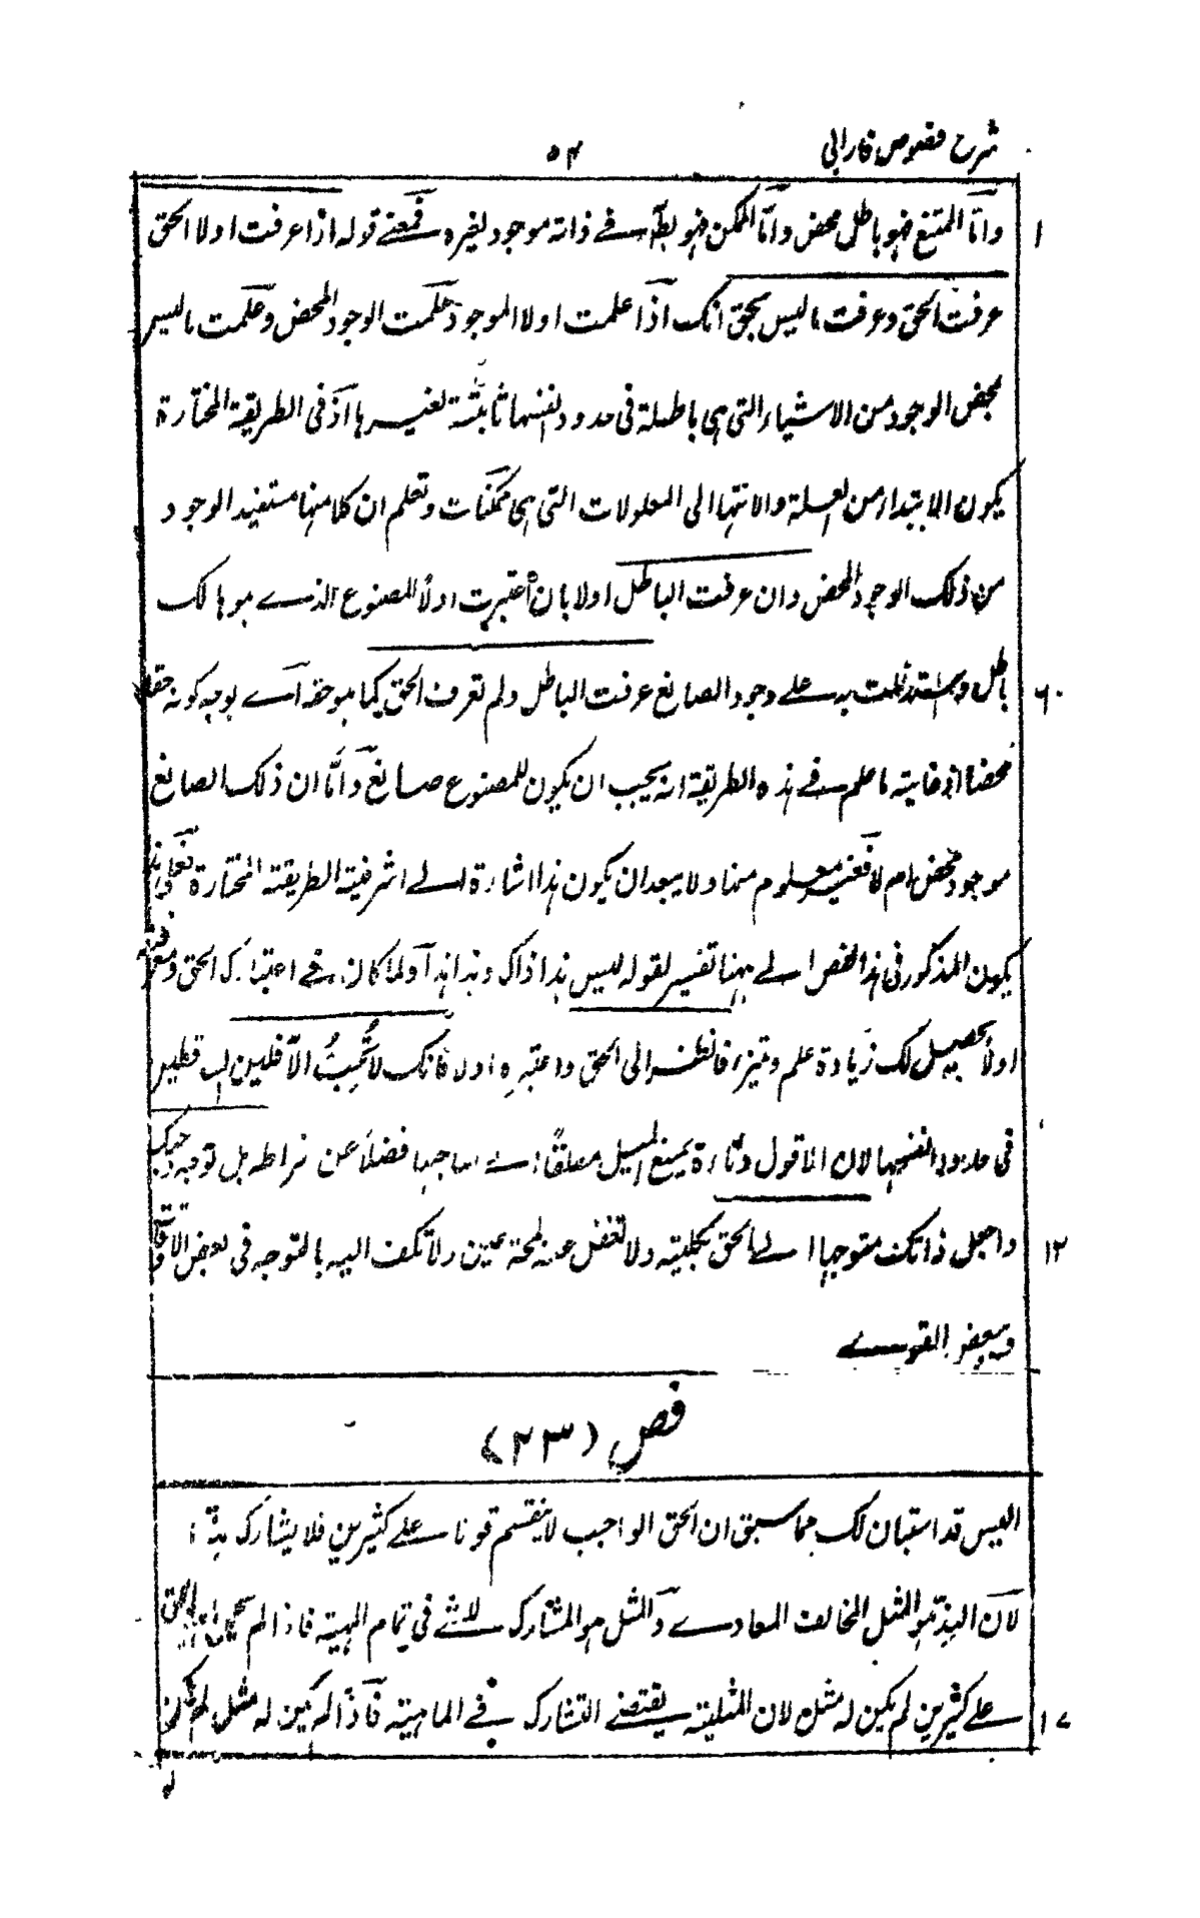 شرح فصوص فارابی
٥٢
١ واما الممتنع فهو باطل محض واما الممكن فهو باطل في ذاته موجود لغيره فمعنى قوله اذا عرفت اولا الحق
عرفت الحق وعرفت ما ليس بحق انك اذا علمت اولا الموجود علمت الوجود المحض وعلمت ما ليس
بمحض الوجود من الاشياء التي هي باطلة في حدود انفسها ثابتة لغيرها اذ في الطريقة المختارة
يكون الابتداء من العلة والانتهاء الى المعلولات التي هي ممكنات وتعلم ان كلا منها مستفيد الوجود
من ذلك الوجود المحض وان عرفت الباطل اولا بان اعتبرت اولا المصنوع الذي هو هالك
٦ باطل واستدللت به على وجود الصانع عرفت الباطل ولم تعرف الحق كما هو حقه اي بوجه كونه حقا
محضا اذ غاية ما علم في هذه الطريقة انه يجب ان يكون للمصنوع صانع واما ان ذلك الصانع
موجود محض ام لا فغير معلوم منها ولا يبعد ان يكون هذا اشارة الى اشرفية الطريقة المختارة فعلى هذا
يكون المذكور في هذا الفص الى ههنا تفسير لقوله ليس هذا ذاك وهذا هذا ولما كان في اعتبارك الحق ومعرفته
اولا يحصل لك زيادة علم وتميز فانظر الى الحق واعتبره اولا فانك لا تحب الآفلين
في حدود انفسها لان الافول يمنع الميل مطلقا الى صاحبها فضلا عن بل توجه وجهك
١٢ واجعل ذاتك متوجها الى الحق بكليته ولا تغفل عنه لمحة عين ولا تكف اليه بالتوجه في بعض الاوقات
وببعض القوى
فص (٢٣)
اليس قد استبان لك مما سبق ان الحق الواجب لا ينقسم قولا على كثيرين فلا يشارك ندا
لان الند هو المثل المخالف المعادي والمثل هو المشارك للشيء في تمام المهية فاذا لم الحق
١٧ على كثيرين لم يكن له مثل لان المثلية يقتضي التشارك في الماهية فاذا لم يكن له مثل لم يكن
له